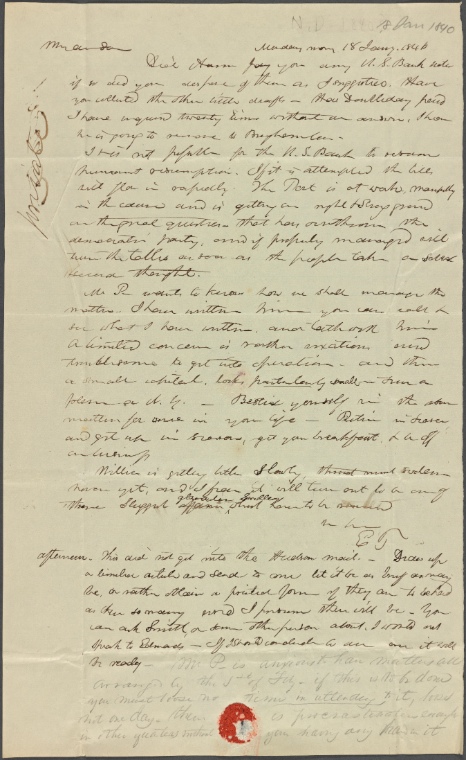 8 Jan 1840
My dear son Monday mor 18 Jany. 1840
Did Hiram pay you any U.S. Bank note
if so did you dispose of them as I suggested. Have
you collected the other little drafts – Has Doubleday paid
I have inquired twenty times without an answer. I hear
he is going to remove to Binghamton.
It is not possible for the U.S. Bank to resume
permanent resumption. If it is attempted the bill
will flow in rapidly. The Post is at work manfully
in the cause and is getting on right strong ground
on the great question that has overthrown the
democratic party, and if properly managed will
turn the tables as soon as the people take a sober
second thought.
Mr P. wants to know how we shall manage the
matter. I have written him you can call &
see what I have written and talk with him
A limited concern is rather vexatious and
troublesome to get into operation – and then
a small capital looks particularly small in such a
place as N.Y. – Bestir yourself in the
matter for once in your life – Retire in season
and get up in season, get your breakfast & be off
on business
William is getting better slowly,
never yet, and I fear it will turn out to be one of
those
E T
afternoon. This did not get into the Hudson mail. – Draw up
a limited article and send to me let it be as brief as may
be, or rather obtain a printed form if they are to be had
as there so many I presume there will be. You
can ask Smith, or some other person about. I would not
speak to Edmonds – If I should conclude to use one it will
be ready – Mr P. is anxious to have matters all
arranged by the 1st of Feby. if this is to be done
you must lose no time in attending to it, lose
not one day. there is procrastination enough
in other quarters without you having any hand in it